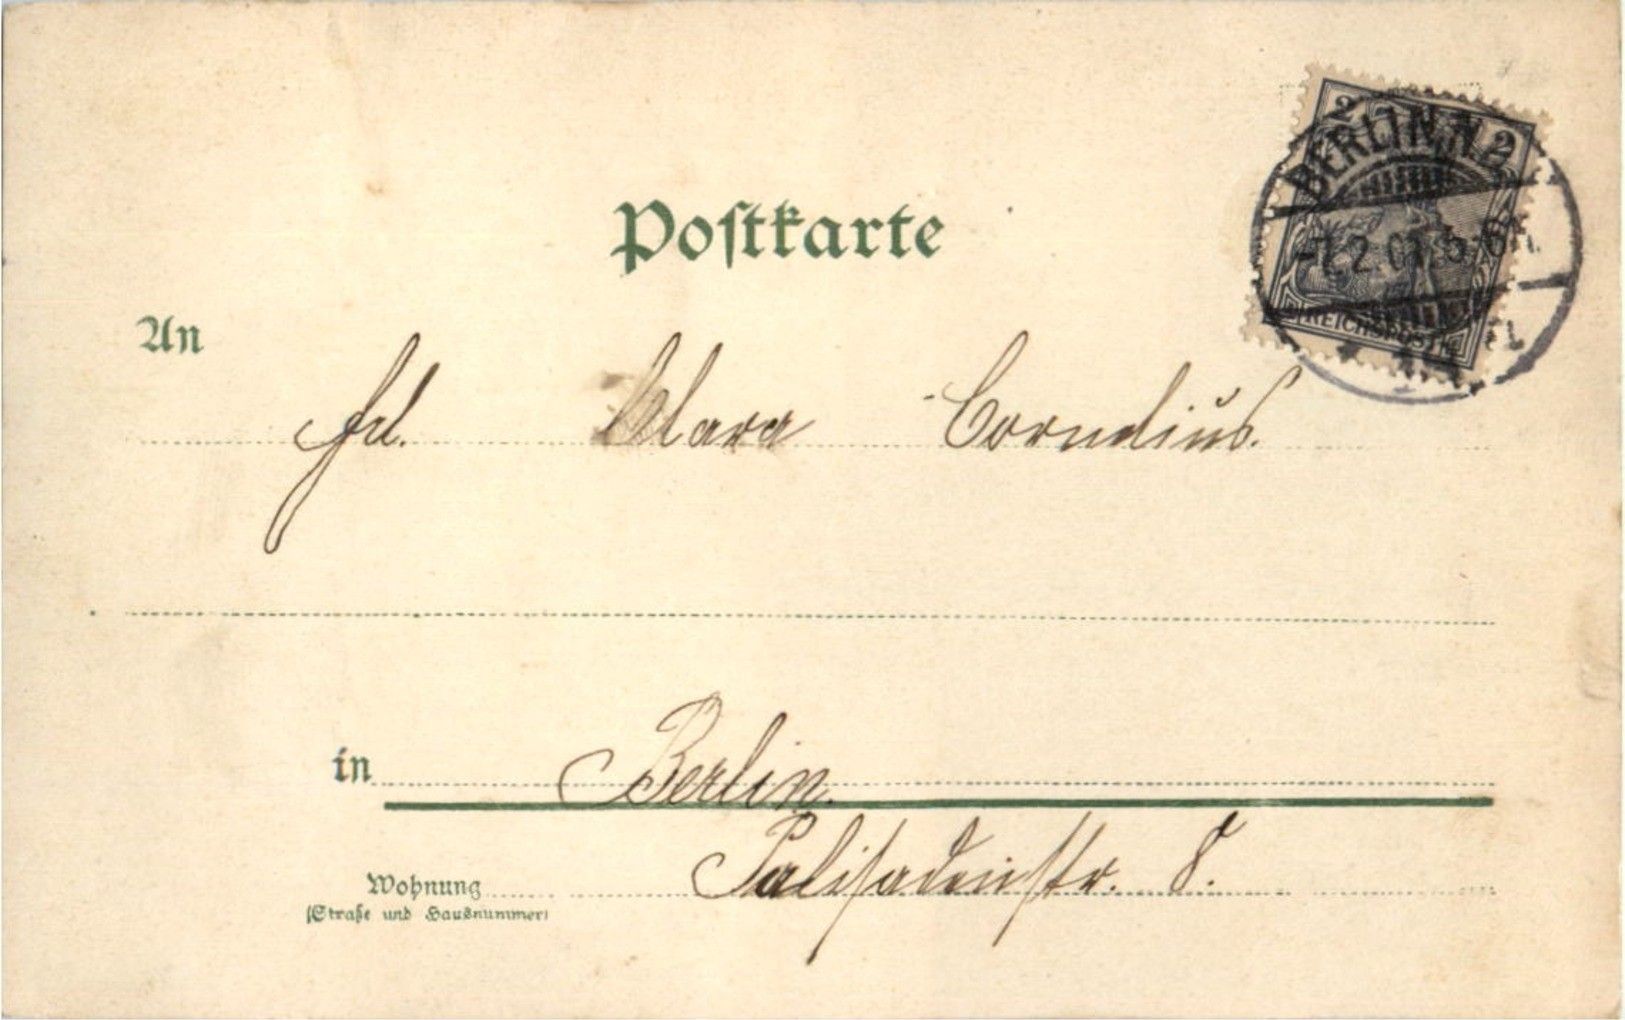 Postkarte
2 2
BERLIN, N.
2. 01. 5-6N.
REICHSPOST
An
Frl. Klara Cornelius.
in Berlin.
Wohnung Palisadenstr. 8.
(Straße und Hausnummer)